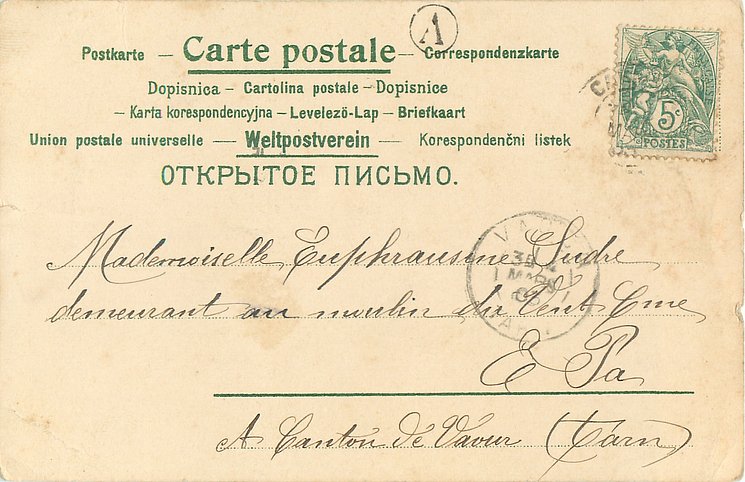 A
Postkarte — Carte postale — Correspondenzkarte
Dopisnica — Cartolina postale — Dopisnice
— Karta korespondencyjna — Levelező-Lap — Briefkaart
Union postale universelle — Weltpostverein — Korespondenční listek
ОТКРЫТОЕ ПИСЬМО.
5c
POSTES
MARS
Mademoiselle Euphrausine Sudre
demeurant au moulin du Vent
A Canton de Vaour (Tarn)